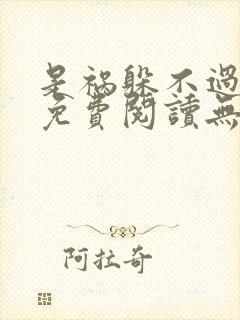 是禍躲不過
免費閱讀無
阿拉奇